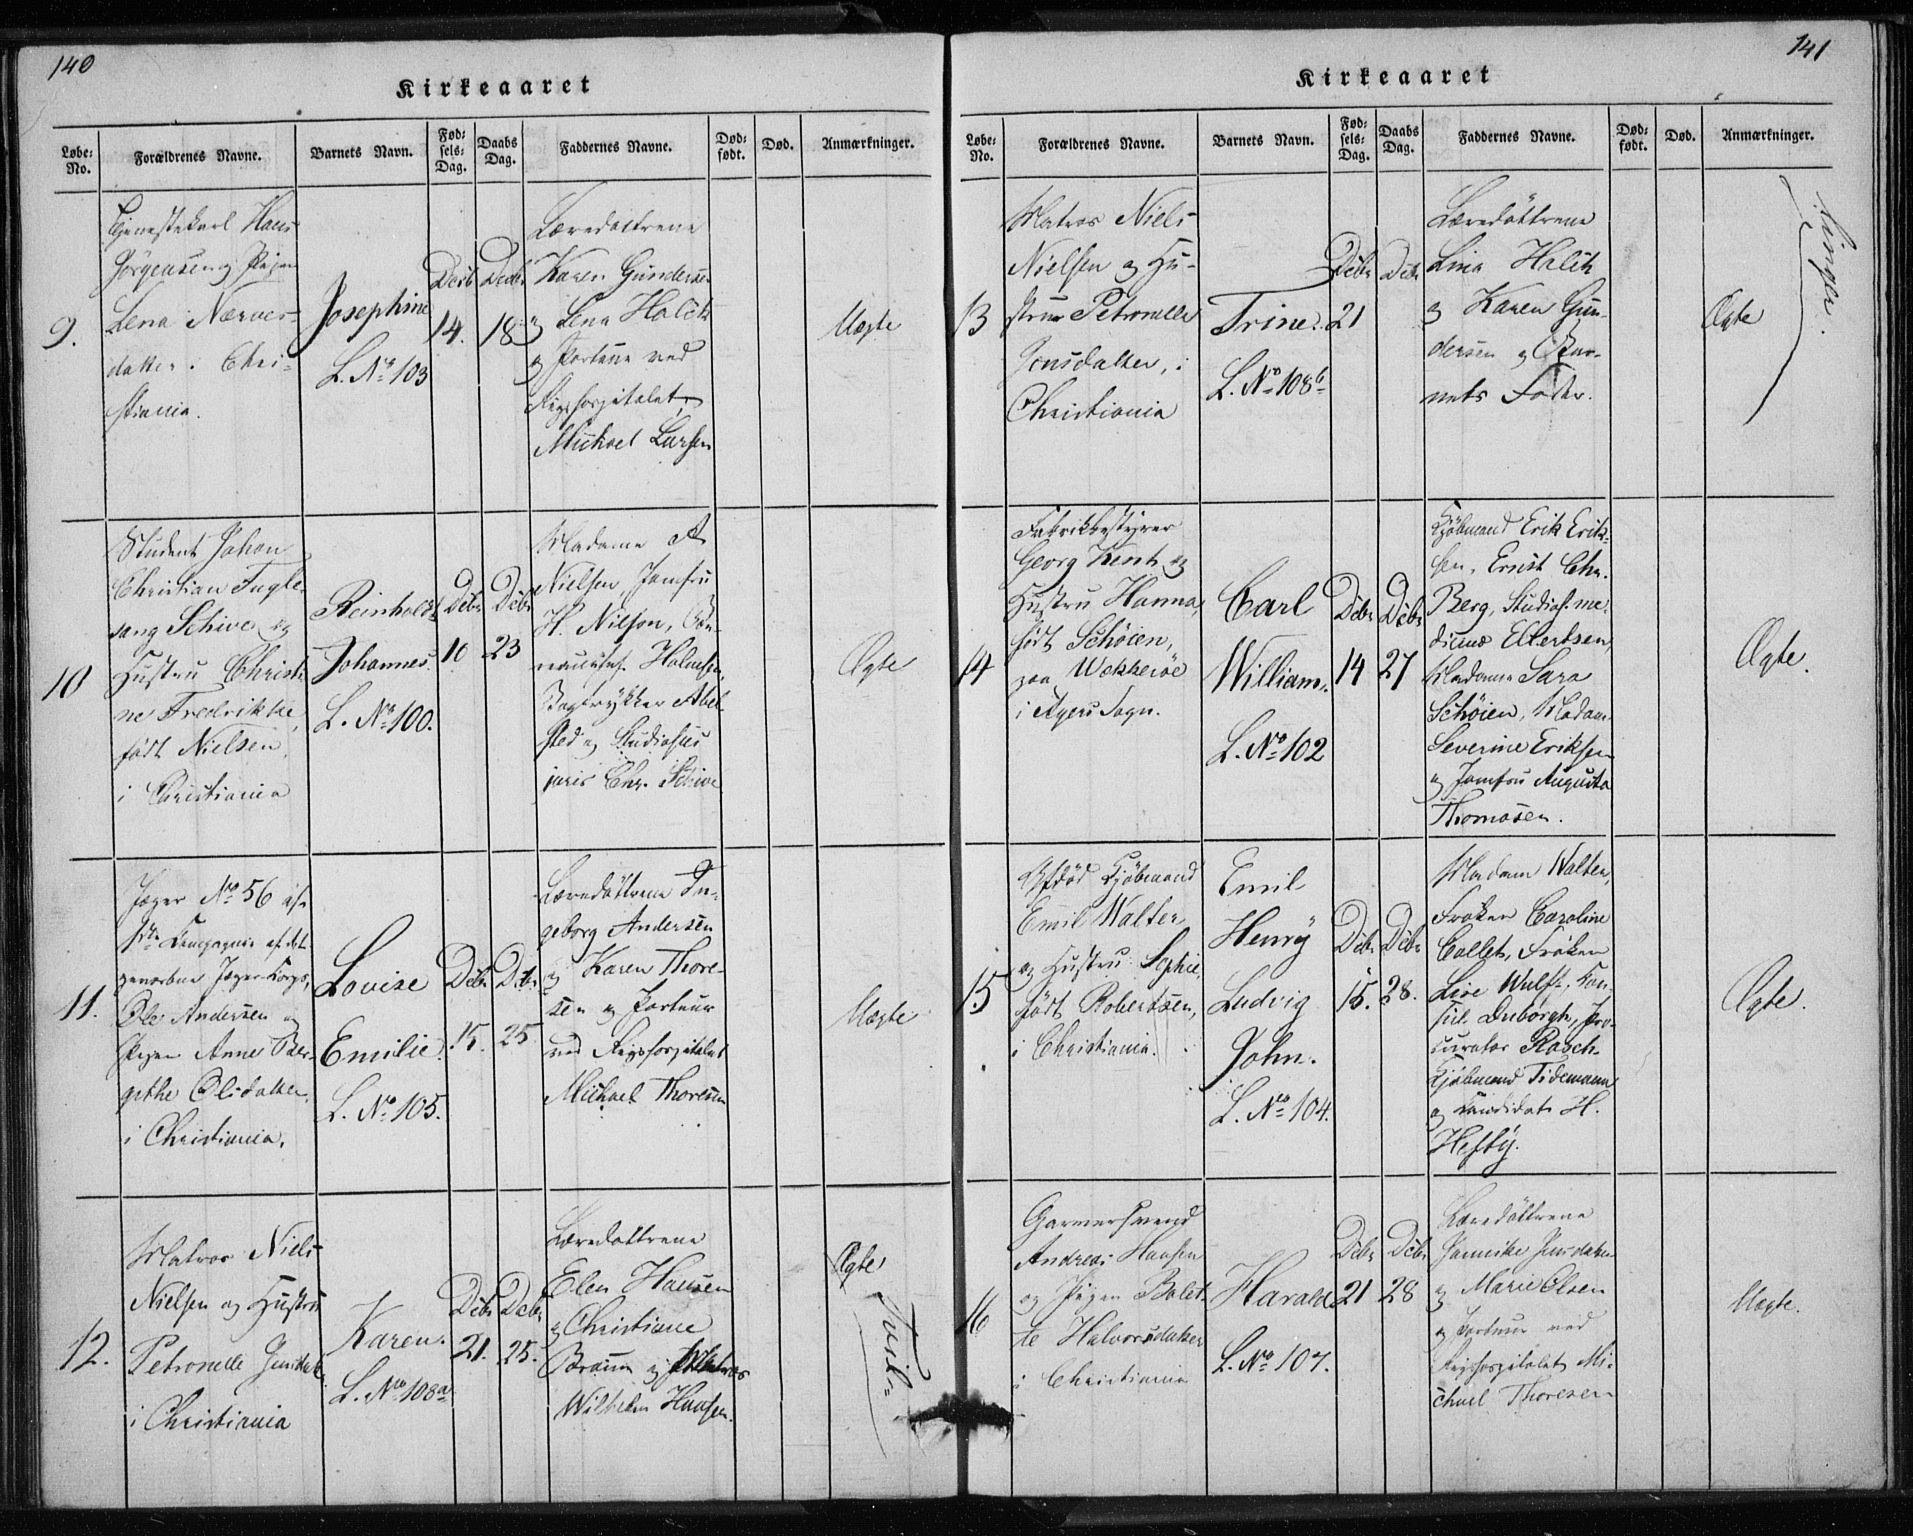 140
Kirkeaaret
Løbe-No.
Forældrenes Navne.
Barnets Navn.
Fødsels-Dag.
Daabs Dag.
Faddernes Navne.
Dødfødt.
Død.
Anmærkninger.
9.
Tjenestekarl Hans
Jörgensen og Pigen
Lena
datter. Chri-
stiania.
Josephine
L. No 103
Decb
14.
Decbr
18
Læredøttrene
Karen Gundersen
og Lena Holith
og Porteur ved
Rigshospitalet
Michael Larsen
Uægte
10
Student Johan
Christian Fugle-
sang Schive og
Hustru Christi-
ne Fredrikke,
født Nielsen,
i Christiania
Reinholdt
Johannes.
L. No 100.
Dcbr
10
Dcbr
23
Madame A
Nielsen, Jomfru
H. Nilson,
Holmsen,
Bogtrykker Abel-
sted og Studiosus
juris Chr. Schive
Ægte
11.
Jæger No 56 af
Compagnie af det
Jæger-Korps,
Ole Andersen og
Pigen Anne Ber-
gitthe Olsdatter
i Christiania.
Lovise
Emilie.
L. No 105.
Dcbr
15.
Dcbr
25.
Læredøttrene In-
geborg Andersen
og Karen Thore-
sen og Porteur
ved Rigshospitalet
Michael Thoresen
Uægte
12.
Matros Niels
Nielsen og Hustru
Petronelle Jensdat.
i Christiania
Karen.
L. No 108a
Dcbr
21.
Dcbr
25.
Læredøttrene
Elen Hansen
og Christiane
Braun og Matros
Wilhelm Hansen.
Ægte
Tvil-
141
Kirkeaaret
Løbe-No.
Forældrenes Navne.
Barnets Navn.
Fødsels-Dag.
Daabs Dag.
Faddernes Navne.
Dødfødt.
Død.
Anmærkninger.
13
Matros Niels
Nielsen og Hu-
stru Petronelle
Jensdatter, i
Christiania
Trine.
L. No 108b
Dcbr
21
Dcbr
Læredøttrene
Lina Holith
og Karen Gun-
dersen og Bar-
nets Fader.
Ægte
linger.
14
Fabrikbestyrer
Georg Kent og
Hustru Hanna,
født Schöien,
paa Wækkeröe
i Agers Sogn.
Carl
William.
L. No 102
Dcbr
14
Dcbr
27
Kjøbmand Erik Erik-
sen, Ernst Chr.
Berg, Studios. me-
dicinæ Ellertsen,
Madame Sara
Schöien, Madam
Severine Eriksen
og Jomfru Augusta
Thomasen.
Ægte.
15
Afdød Kjøbmand
Emil Walter
og Hustru Sophie,
født Robertsen,
i Christiania.
Emil
Henry
Ludvig
John.
L. No 104.
Dcbr
15.
Dcbr
28.
Madam Walter,
Frøken Caroline
Collett, Frøken
Lise Wulff, Kon-
sul Duborgh, Pro-
curator Rasch
Kjøbmand Tidemann
og Candidat H.
Heftÿ.
Ægte.
16
Garmersvend
Andreas Hansen
og Pigen Bolet-
te Halvorsdatter
i Christiania
Harald
L. No 107.
Dcbr
21
Dcbr
28
Læredøttrene
Jannike Jensdatter
og Marie Olsen
og Porteur ved
Rigshospitalet Mi-
chael Thoresen
Uægte.